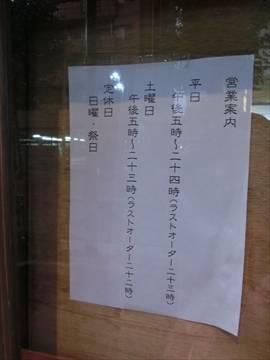 営業案内
平日
午後五時～二十四時(ラストオーダー二十三時)
土曜日
午後五時～二十三時(ラストオーダー二十二時)
定休日
日曜・祭日